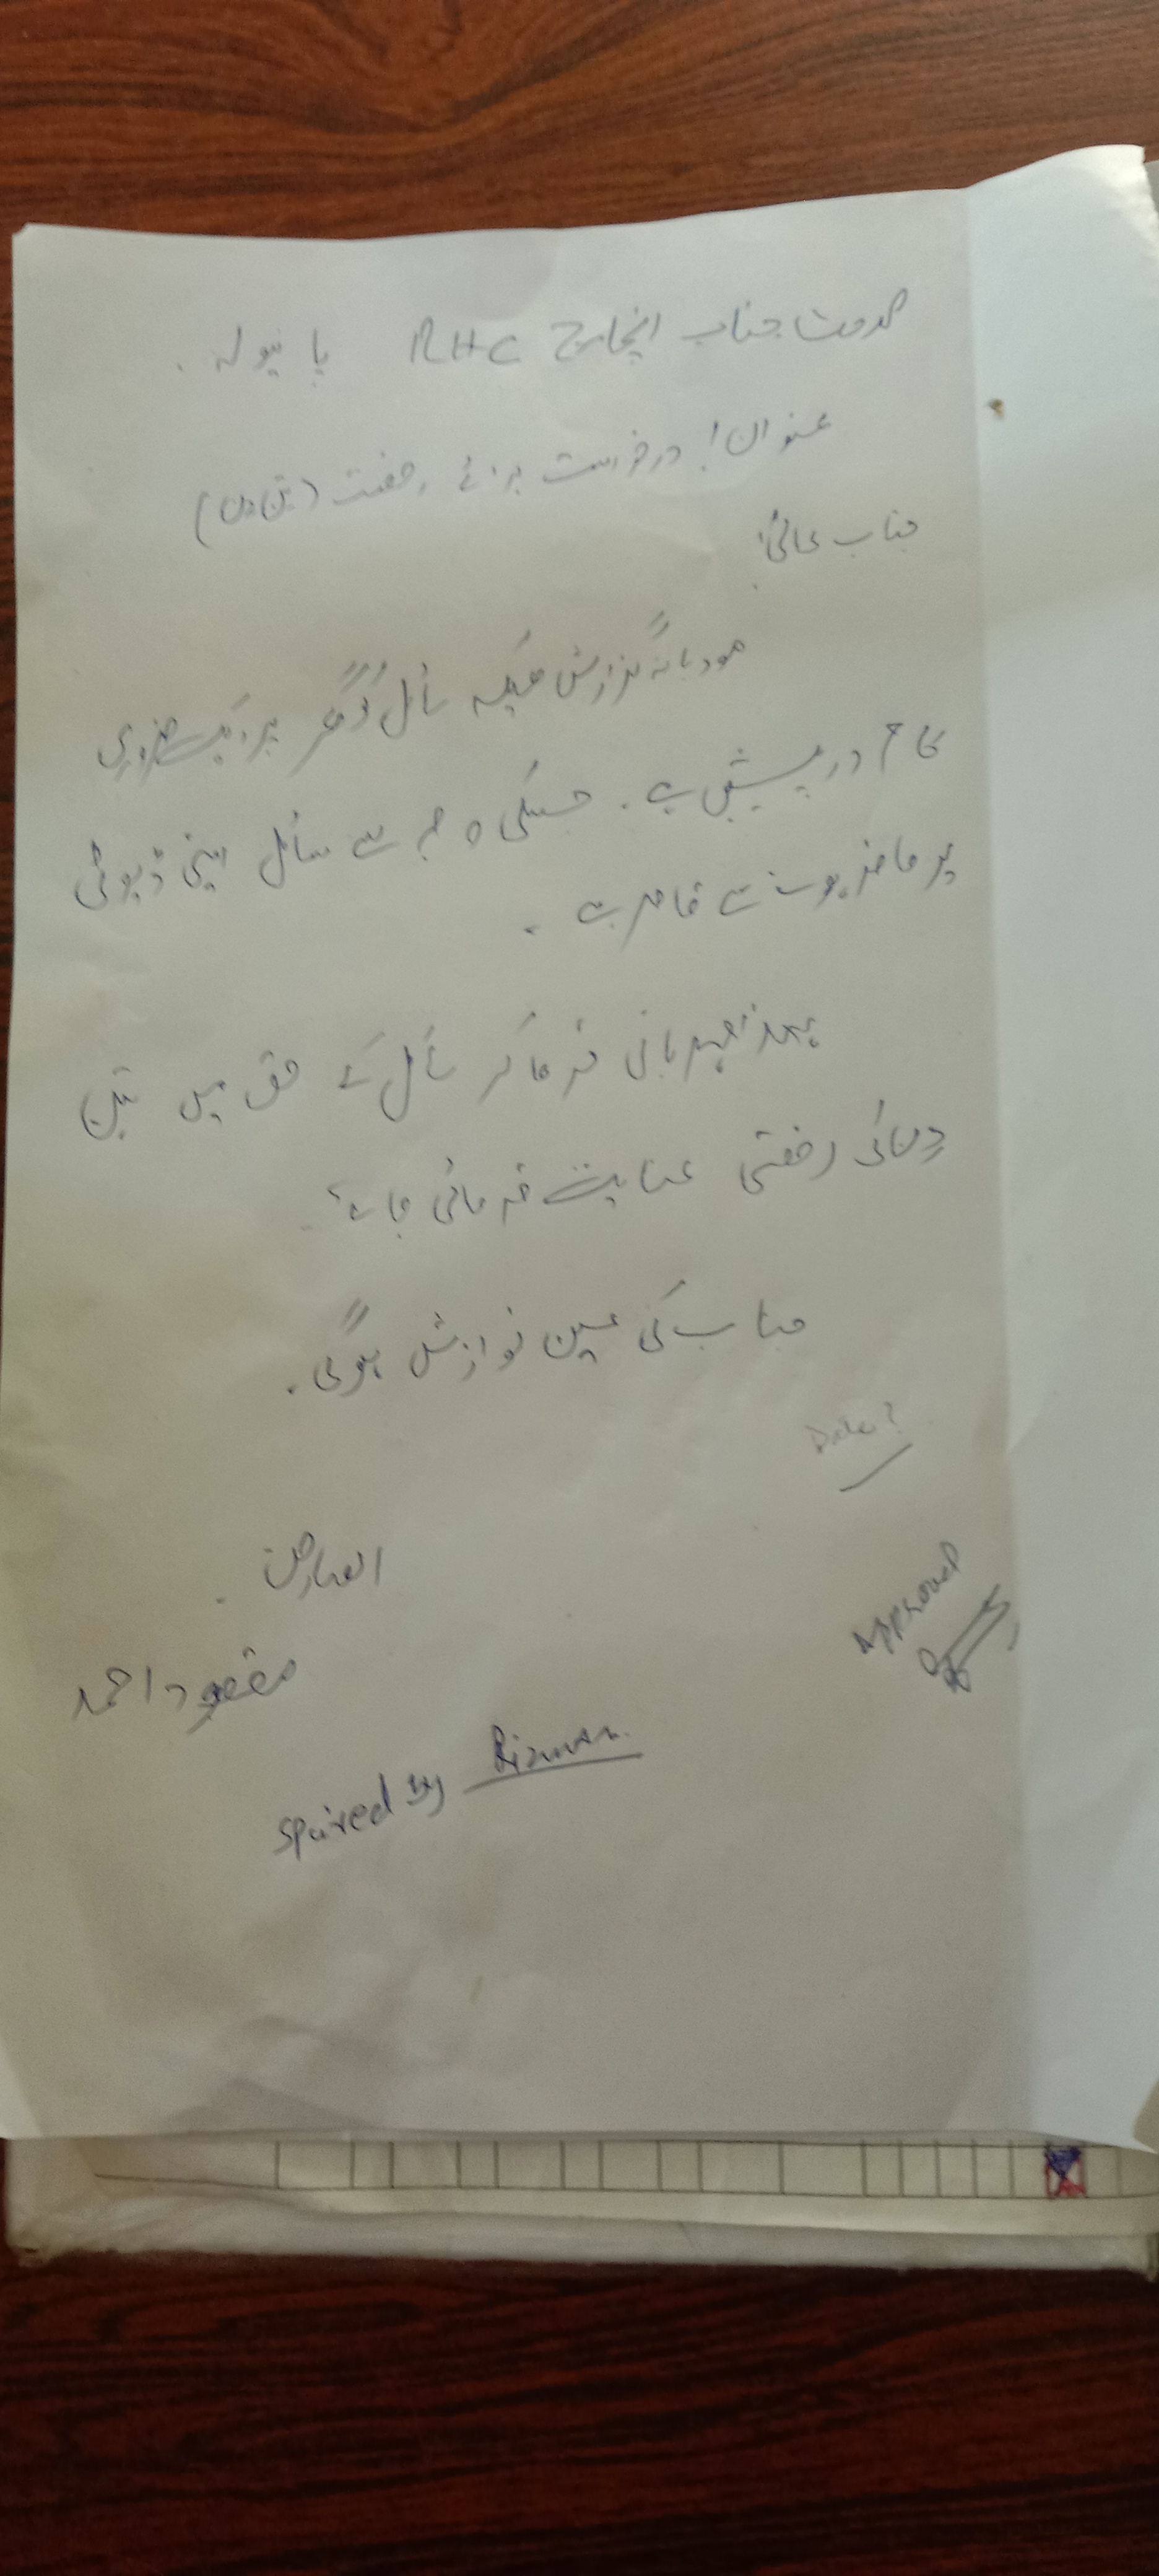 بخدمت جناب انچارج RHC پانیولہ .
عنوان! درخواست برائے رخصت (تین دن)
جناب عالی!
مودبانہ گزارش ھیکہ سائل کو گھر پر ایک ضروری
کام درپیش ہے . جسکی وجہ سے سائل اپنی ڈیوٹی
پر حاضر ہونے سے قاصر ہے .
مہربانی فرما کر سائل کے حق میں تین
دن کی رخصتی عنایت فرمائی جائے .
جناب کی عین نوازش ہوگی .
Date?
العارض
Approved
مقصود احمد
Spaired by Rizwan.